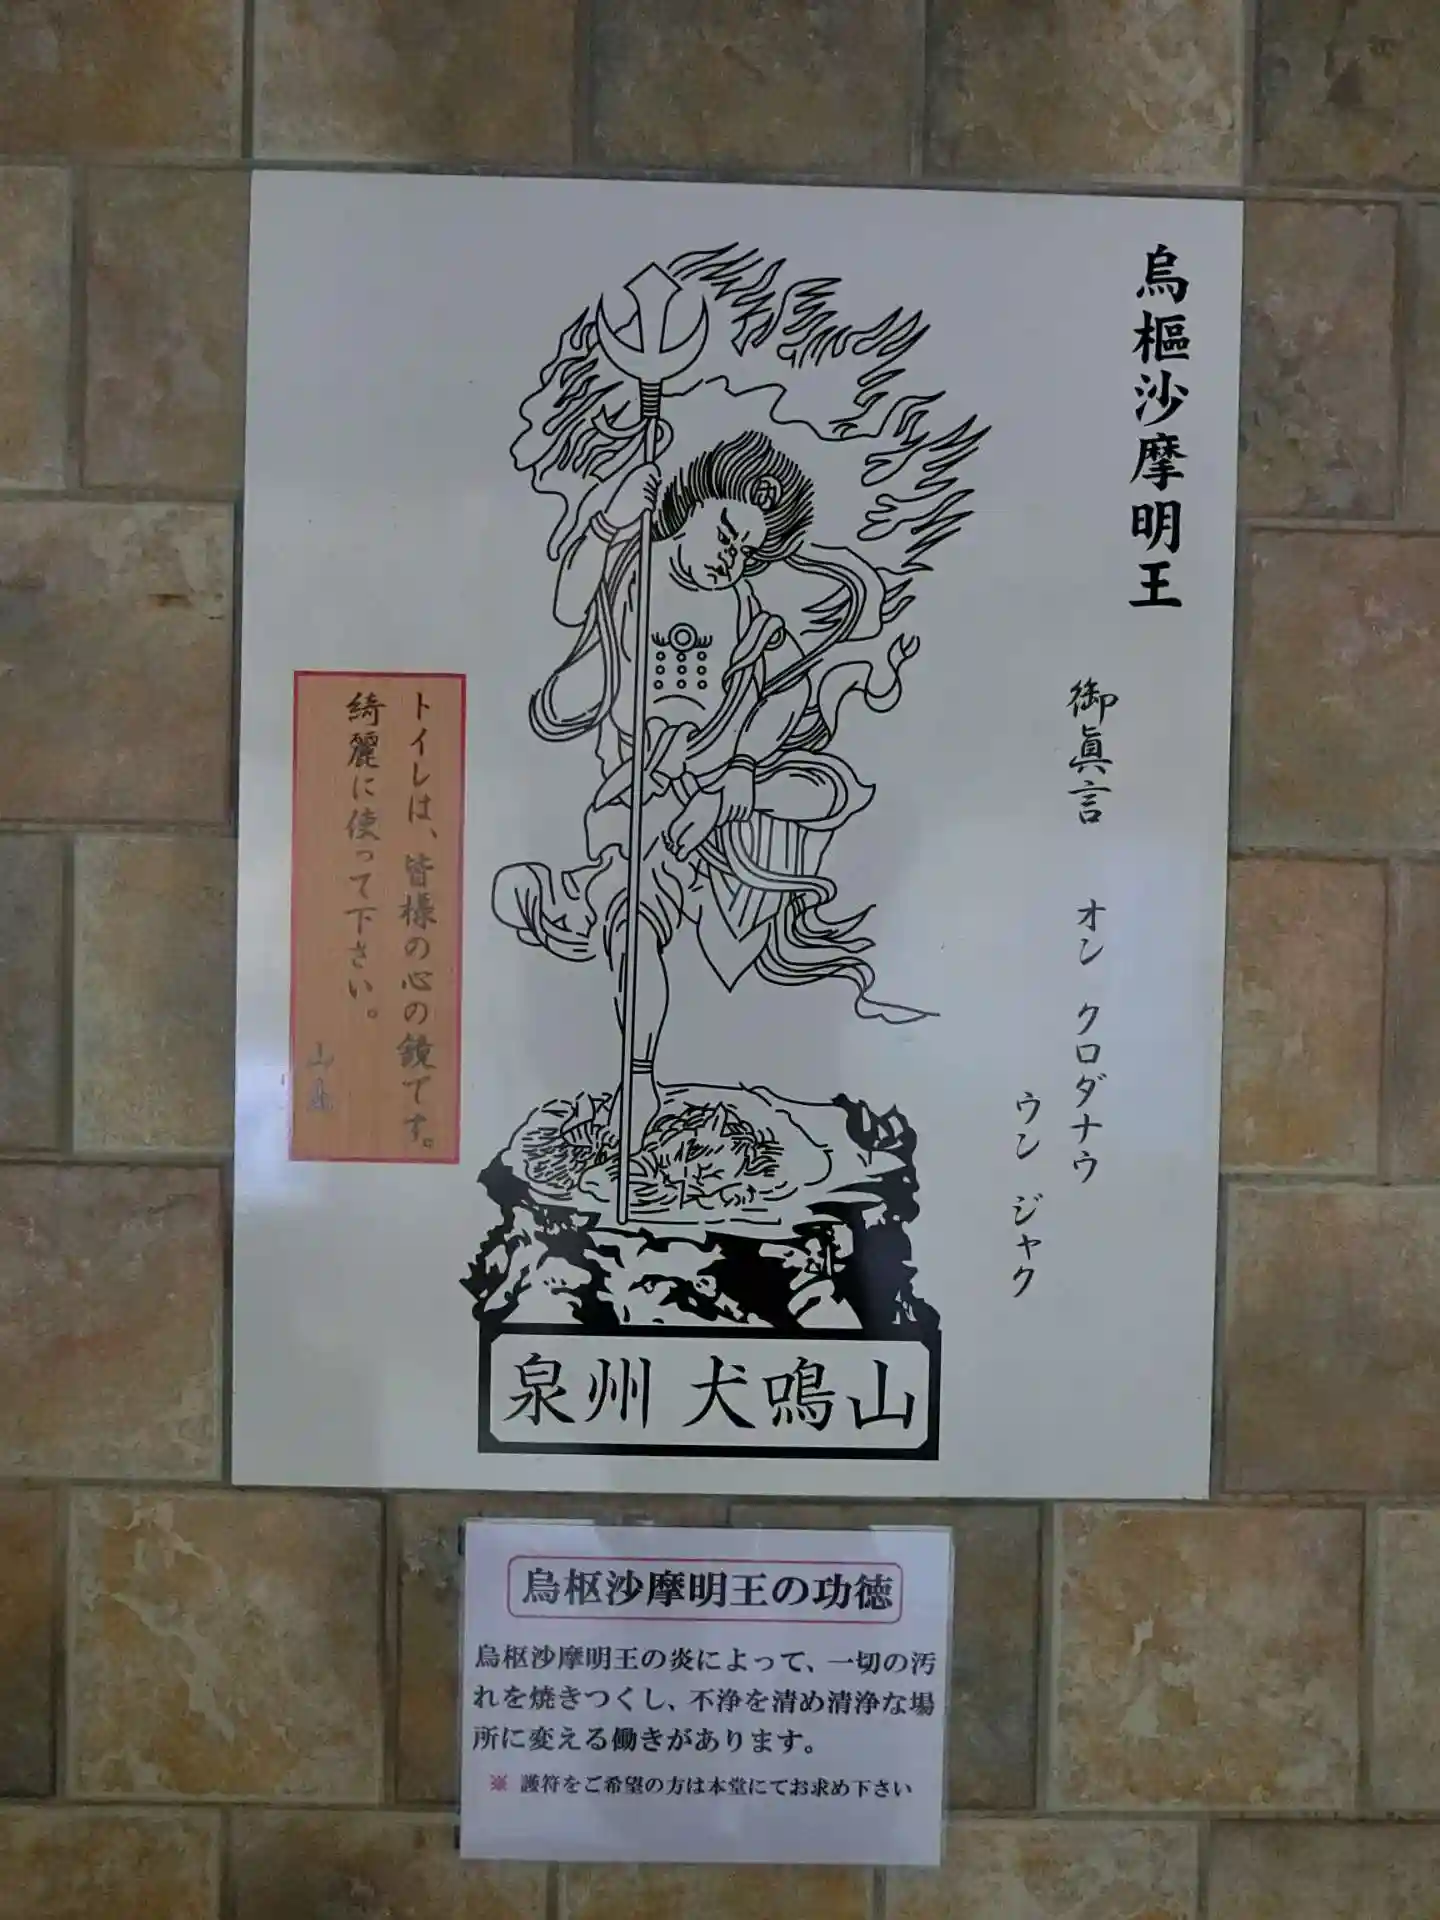 烏樞沙摩明王
御眞言 オン クロダナウ
ウン ジャク
トイレは、皆様の心の鏡です。
綺麗に使って下さい。
山主
泉州 犬鳴山
烏枢沙摩明王の功徳
烏枢沙摩明王の炎によって、一切の汚
れを焼きつくし、不浄を清め清浄な場
所に変える働きがあります。
※ 護符をご希望の方は本堂にてお求め下さい